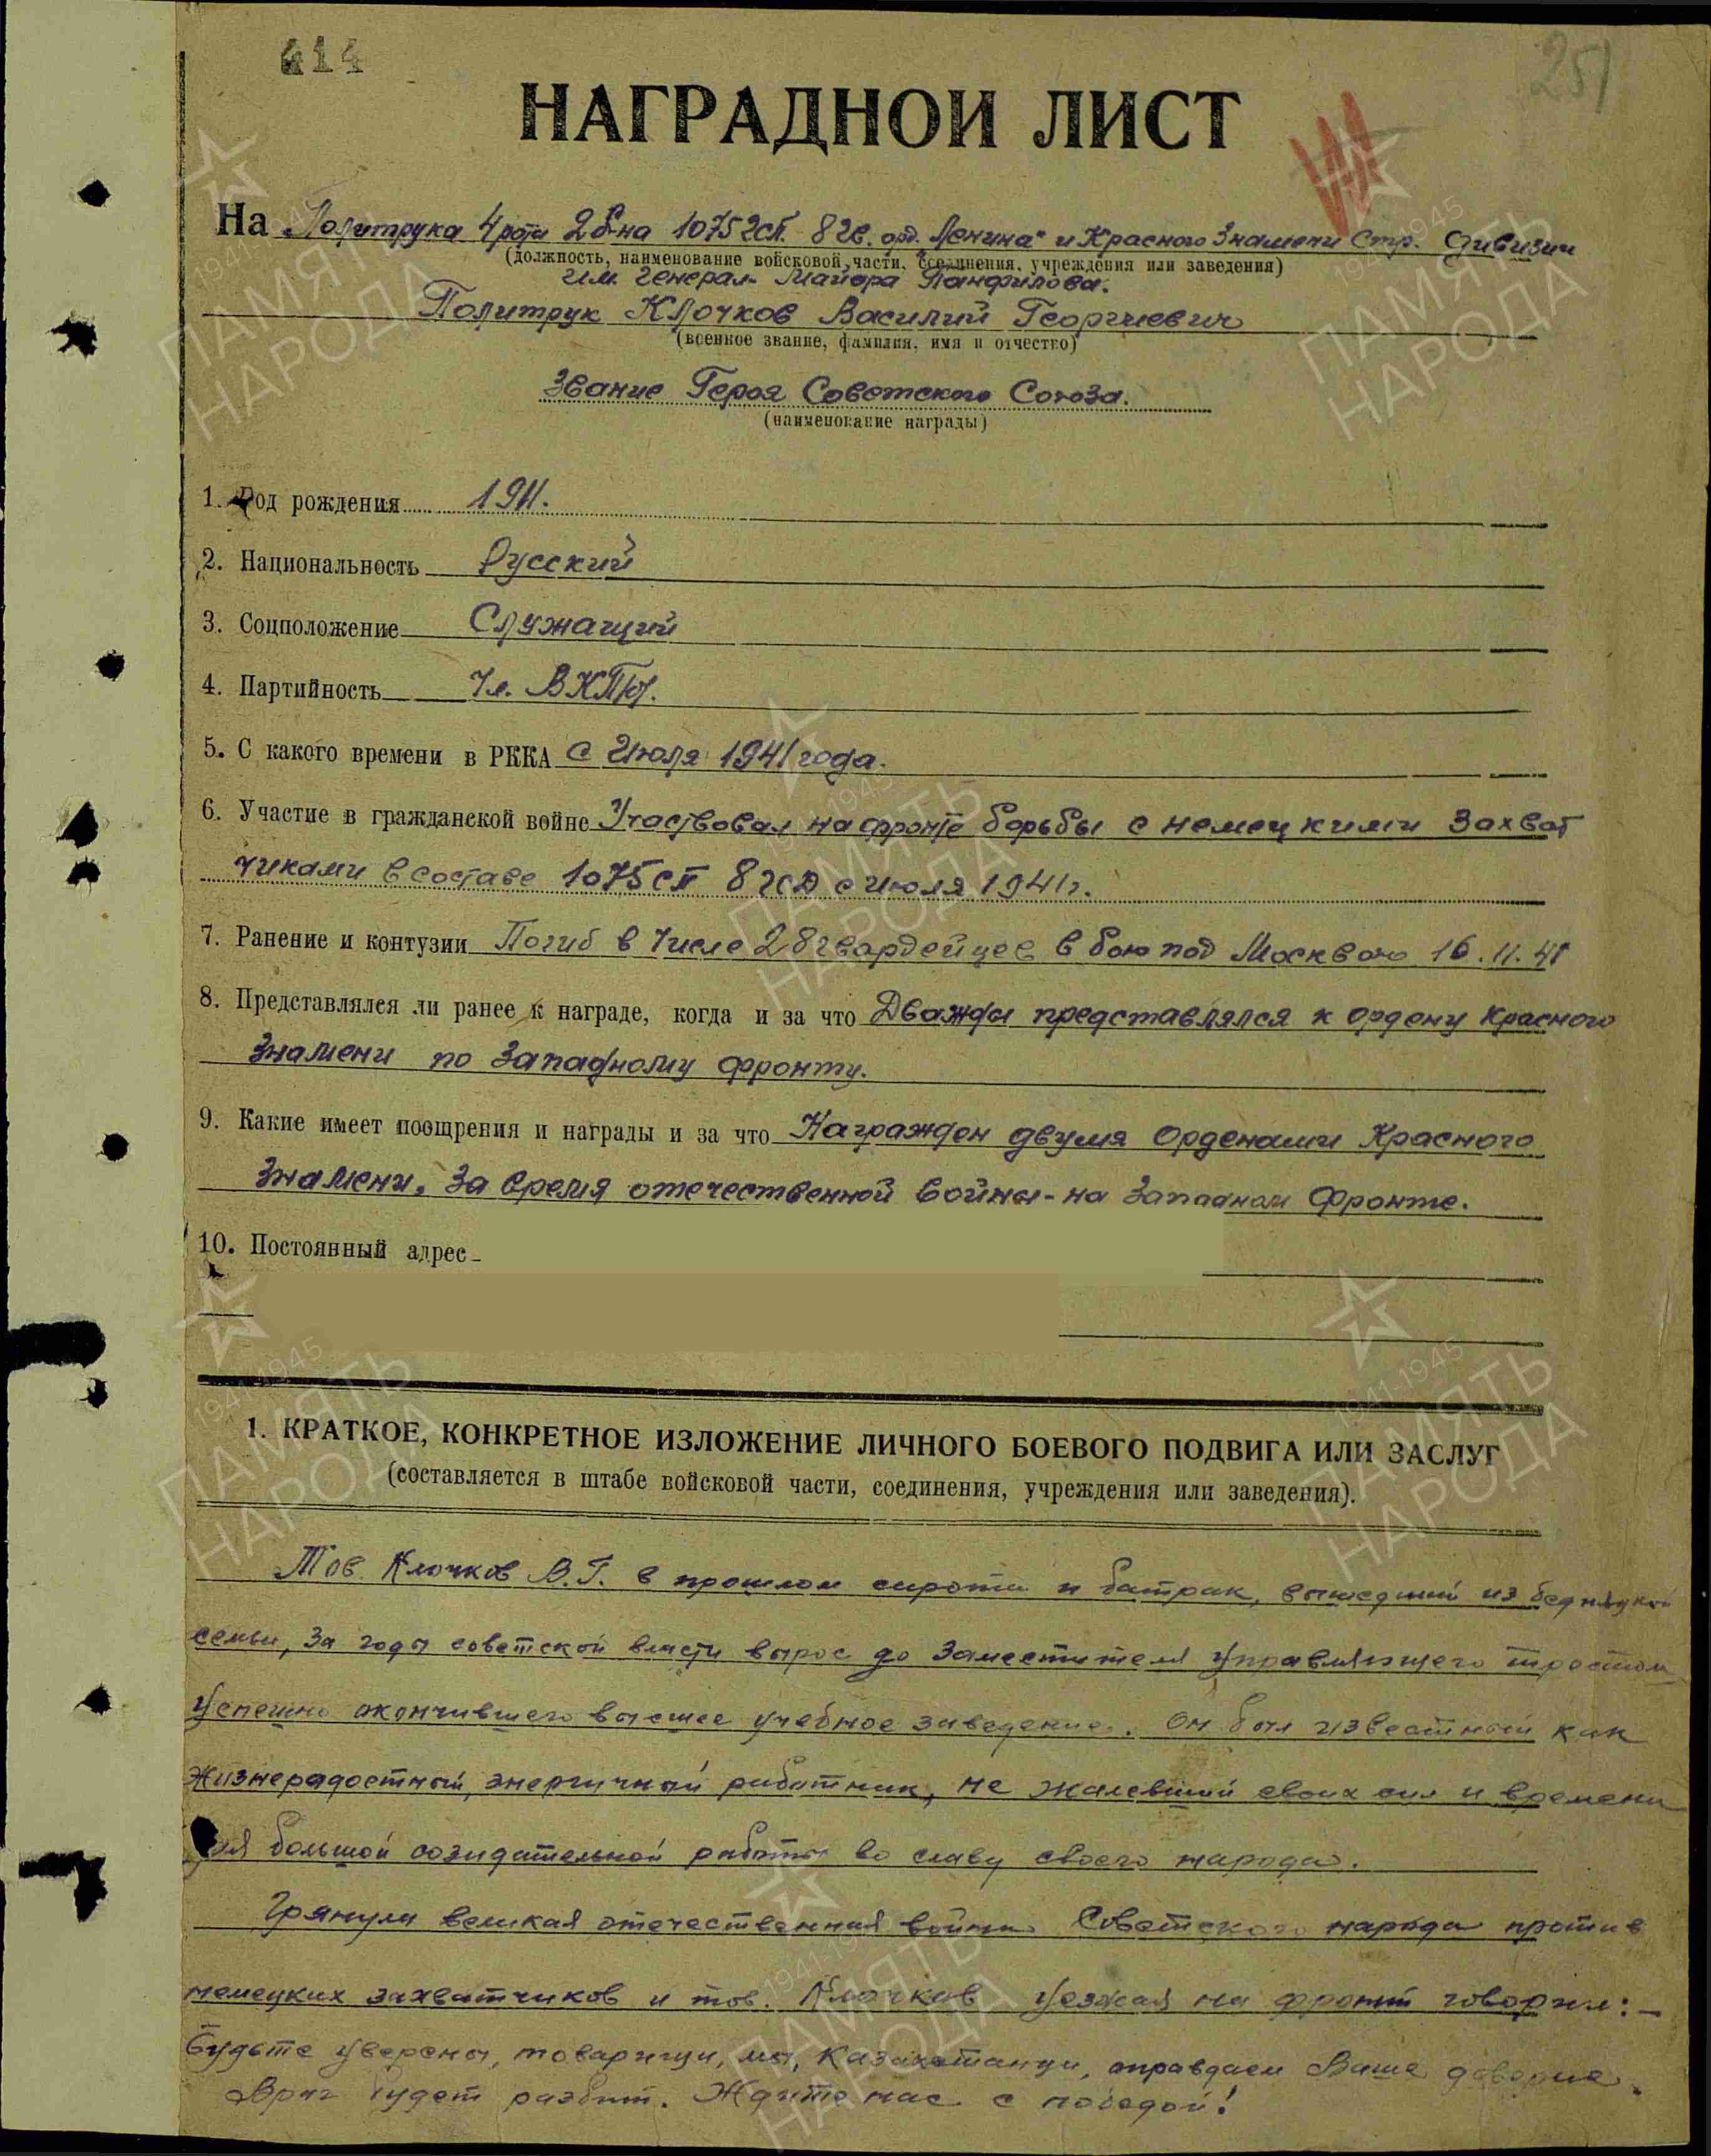 414
251
НАГРАДНОЙ ЛИСТ
На Политрука 4 роты 2 б-на 1075 гсп. 8 гв. орд. "Ленина" и Красного Знамени Стр. дивизии
(должность, наименование войсковой части, соединения, учреждения или заведения)
им. генерал-майора Панфилова.
Политрук Клочков Василий Георгиевич
(военное звание, фамилия, имя и отчество)
Звание Героя Советского Союза.
(наименование награды)
1. Год рождения 1911.
2. Национальность Русский
3. Соцположение Служащий
4. Партийность Чл. ВКП(б).
5. С какого времени в РККА с Июля 1941 года.
6. Участие в гражданской войне Участвовал на фронте борьбы с немецкими захват
чиками в составе 1075 сп 8 гсд с июля 1941 г.
7. Ранение и контузии Погиб в числе 28 гвардейцев в бою под Москвою 16.11.41
8. Представлялся ли ранее к награде, когда и за что Дважды представлялся к ордену Красного
Знамени по Западному фронту.
9. Какие имеет поощрения и награды и за что Награжден двумя орденами Красного
Знамени. За время отечественной войны - на Западном Фронте.
10. Постоянный адрес
1. КРАТКОЕ, КОНКРЕТНОЕ ИЗЛОЖЕНИЕ ЛИЧНОГО БОЕВОГО ПОДВИГА ИЛИ ЗАСЛУГ
(составляется в штабе войсковой части, соединения, учреждения или заведения).
Тов. Клочков В.Г. в прошлом сирота и батрак, вышедший из бедняцкой
семьи, за годы советской власти вырос до заместителя управляющего трестом
успешно окончившего высшее учебное заведение. Он был известный как
жизнерадостный, энергичный работник, не жалевший своих сил и времени
для большой созидательной работы во славу своего народа.
Грянула великая отечественная война Советского народа против
немецких захватчиков и тов. Клочков уезжая на фронт говорил: -
Будьте уверены, товарищи, мы, казахстанцы, оправдаем Ваше доверие.
Враг будет разбит. Ждите нас с победой!
1941-1945
ПАМЯТЬ
НАРОДА